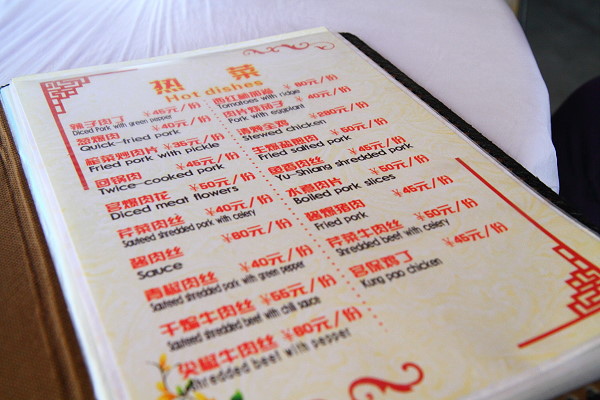 热 菜
Hot dishes
辣子肉丁 ¥45元/份
Diced Pork with green pepper
Quick-fried pork
¥36元/份
Fried pork with pickle
回锅肉 ¥45元/份
Twice-cooked pork
宫爆肉花 ¥60元/份
Diced meat flowers
芹菜肉丝 ¥40元/份
Sauteed shredded pork with celery
酱肉丝 ¥60元/份
Sauce
青椒肉丝 ¥40元/份
Sauteed shredded pork with green pepper
干煸牛肉丝
Sauteed shredded beef with chili sauce
尖椒牛肉丝 ¥60元/份
shredded beef with pepper
Tomatoes with ridge
肉片烧茄子 ¥40元/份
Pork with eggplant
清炖全鸡 ¥280元/份
Stewed chicken
Fried salted pork
鱼香肉丝
Yu-Shiang shredded pork
水煮肉片
Boiled pork slices
酱爆猪肉
Fried pork
芹菜牛肉丝
Shredded beef with celery
宫保鸡丁 ¥45元/份
Kung pao chicken